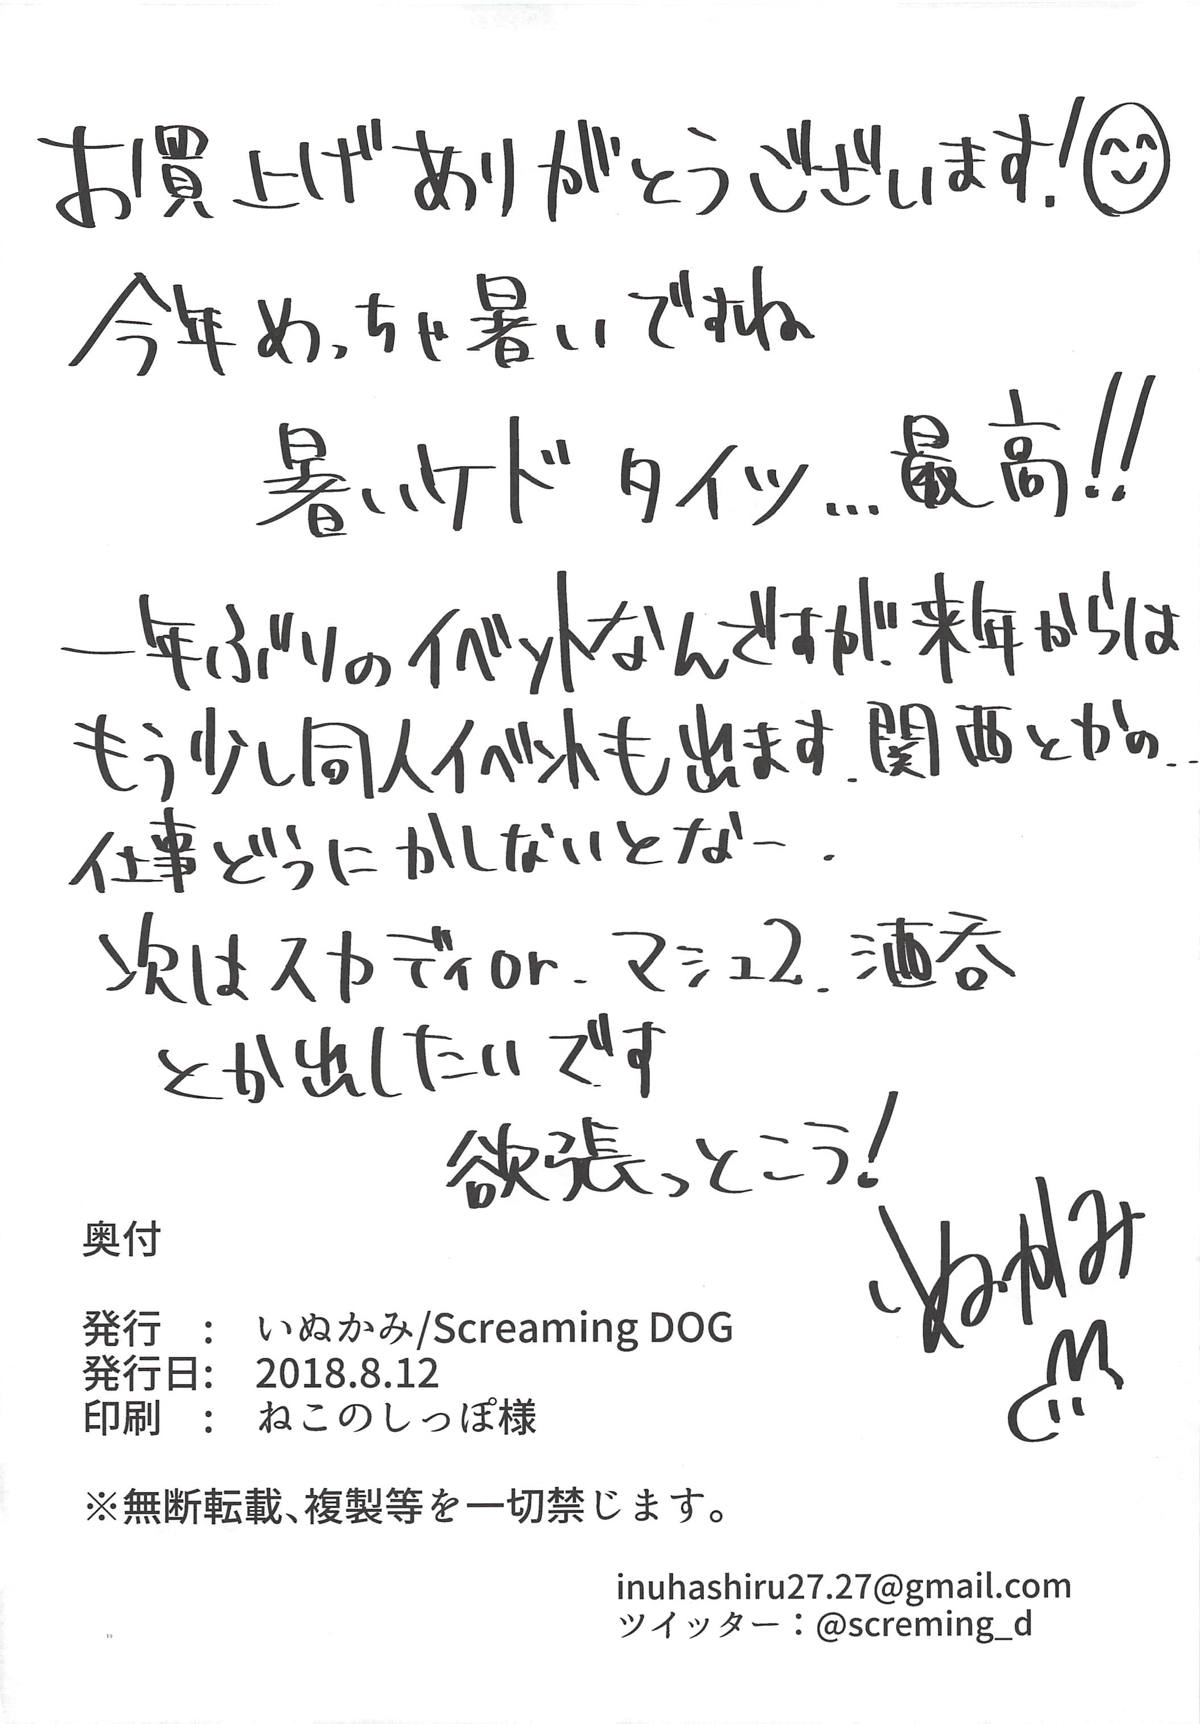 お買上げありがとうございます!
今年めっちゃ暑いですね
暑いケド タイツ...最高!!
一年ぶりのイベントなんですが、来年からは
もう少し同人イベントも出ます. 関西とかの..
仕事どうにかしないとなー.
次はスカディor.マシュ2.酒呑
とか出したいです
欲張っとこう!
いぬかみ
奥付
発行 : いぬかみ/Screaming DOG
発行日: 2018.8.12
印刷 : ねこのしっぽ様
※無断転載、複製等を一切禁じます。
inuhashiru27.27@gmail.com
ツイッター：@screming_d